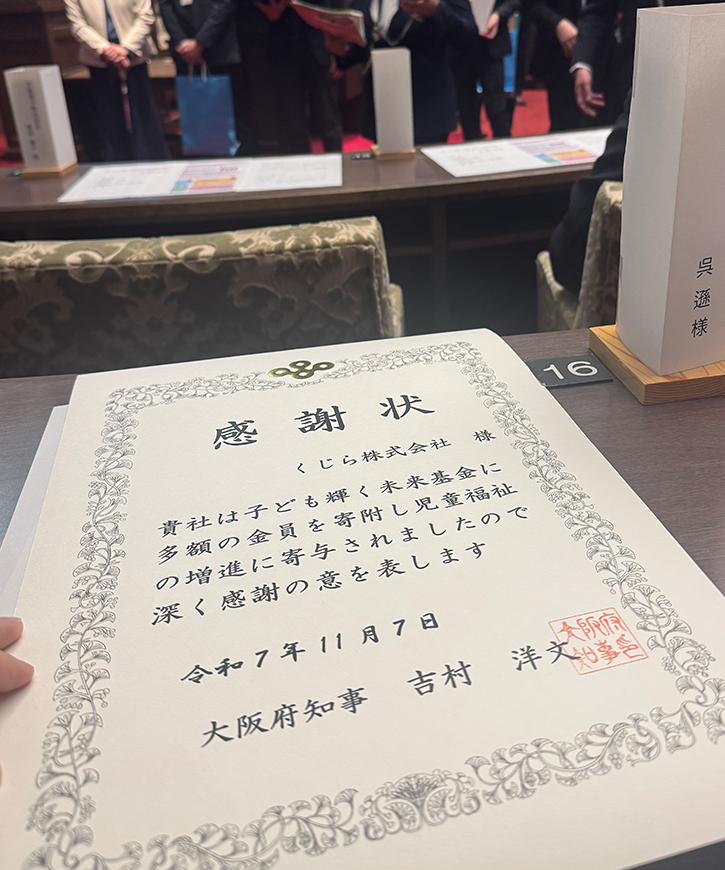 感謝状
くじら株式会社 様
貴社は子ども輝く未来基金に
多額の金員を寄附し児童福祉
の増進に寄与されましたので
深く感謝の意を表します
令和7年11月7日
大阪府知事 吉村 洋文
大阪府
知事印
16
呉遜様